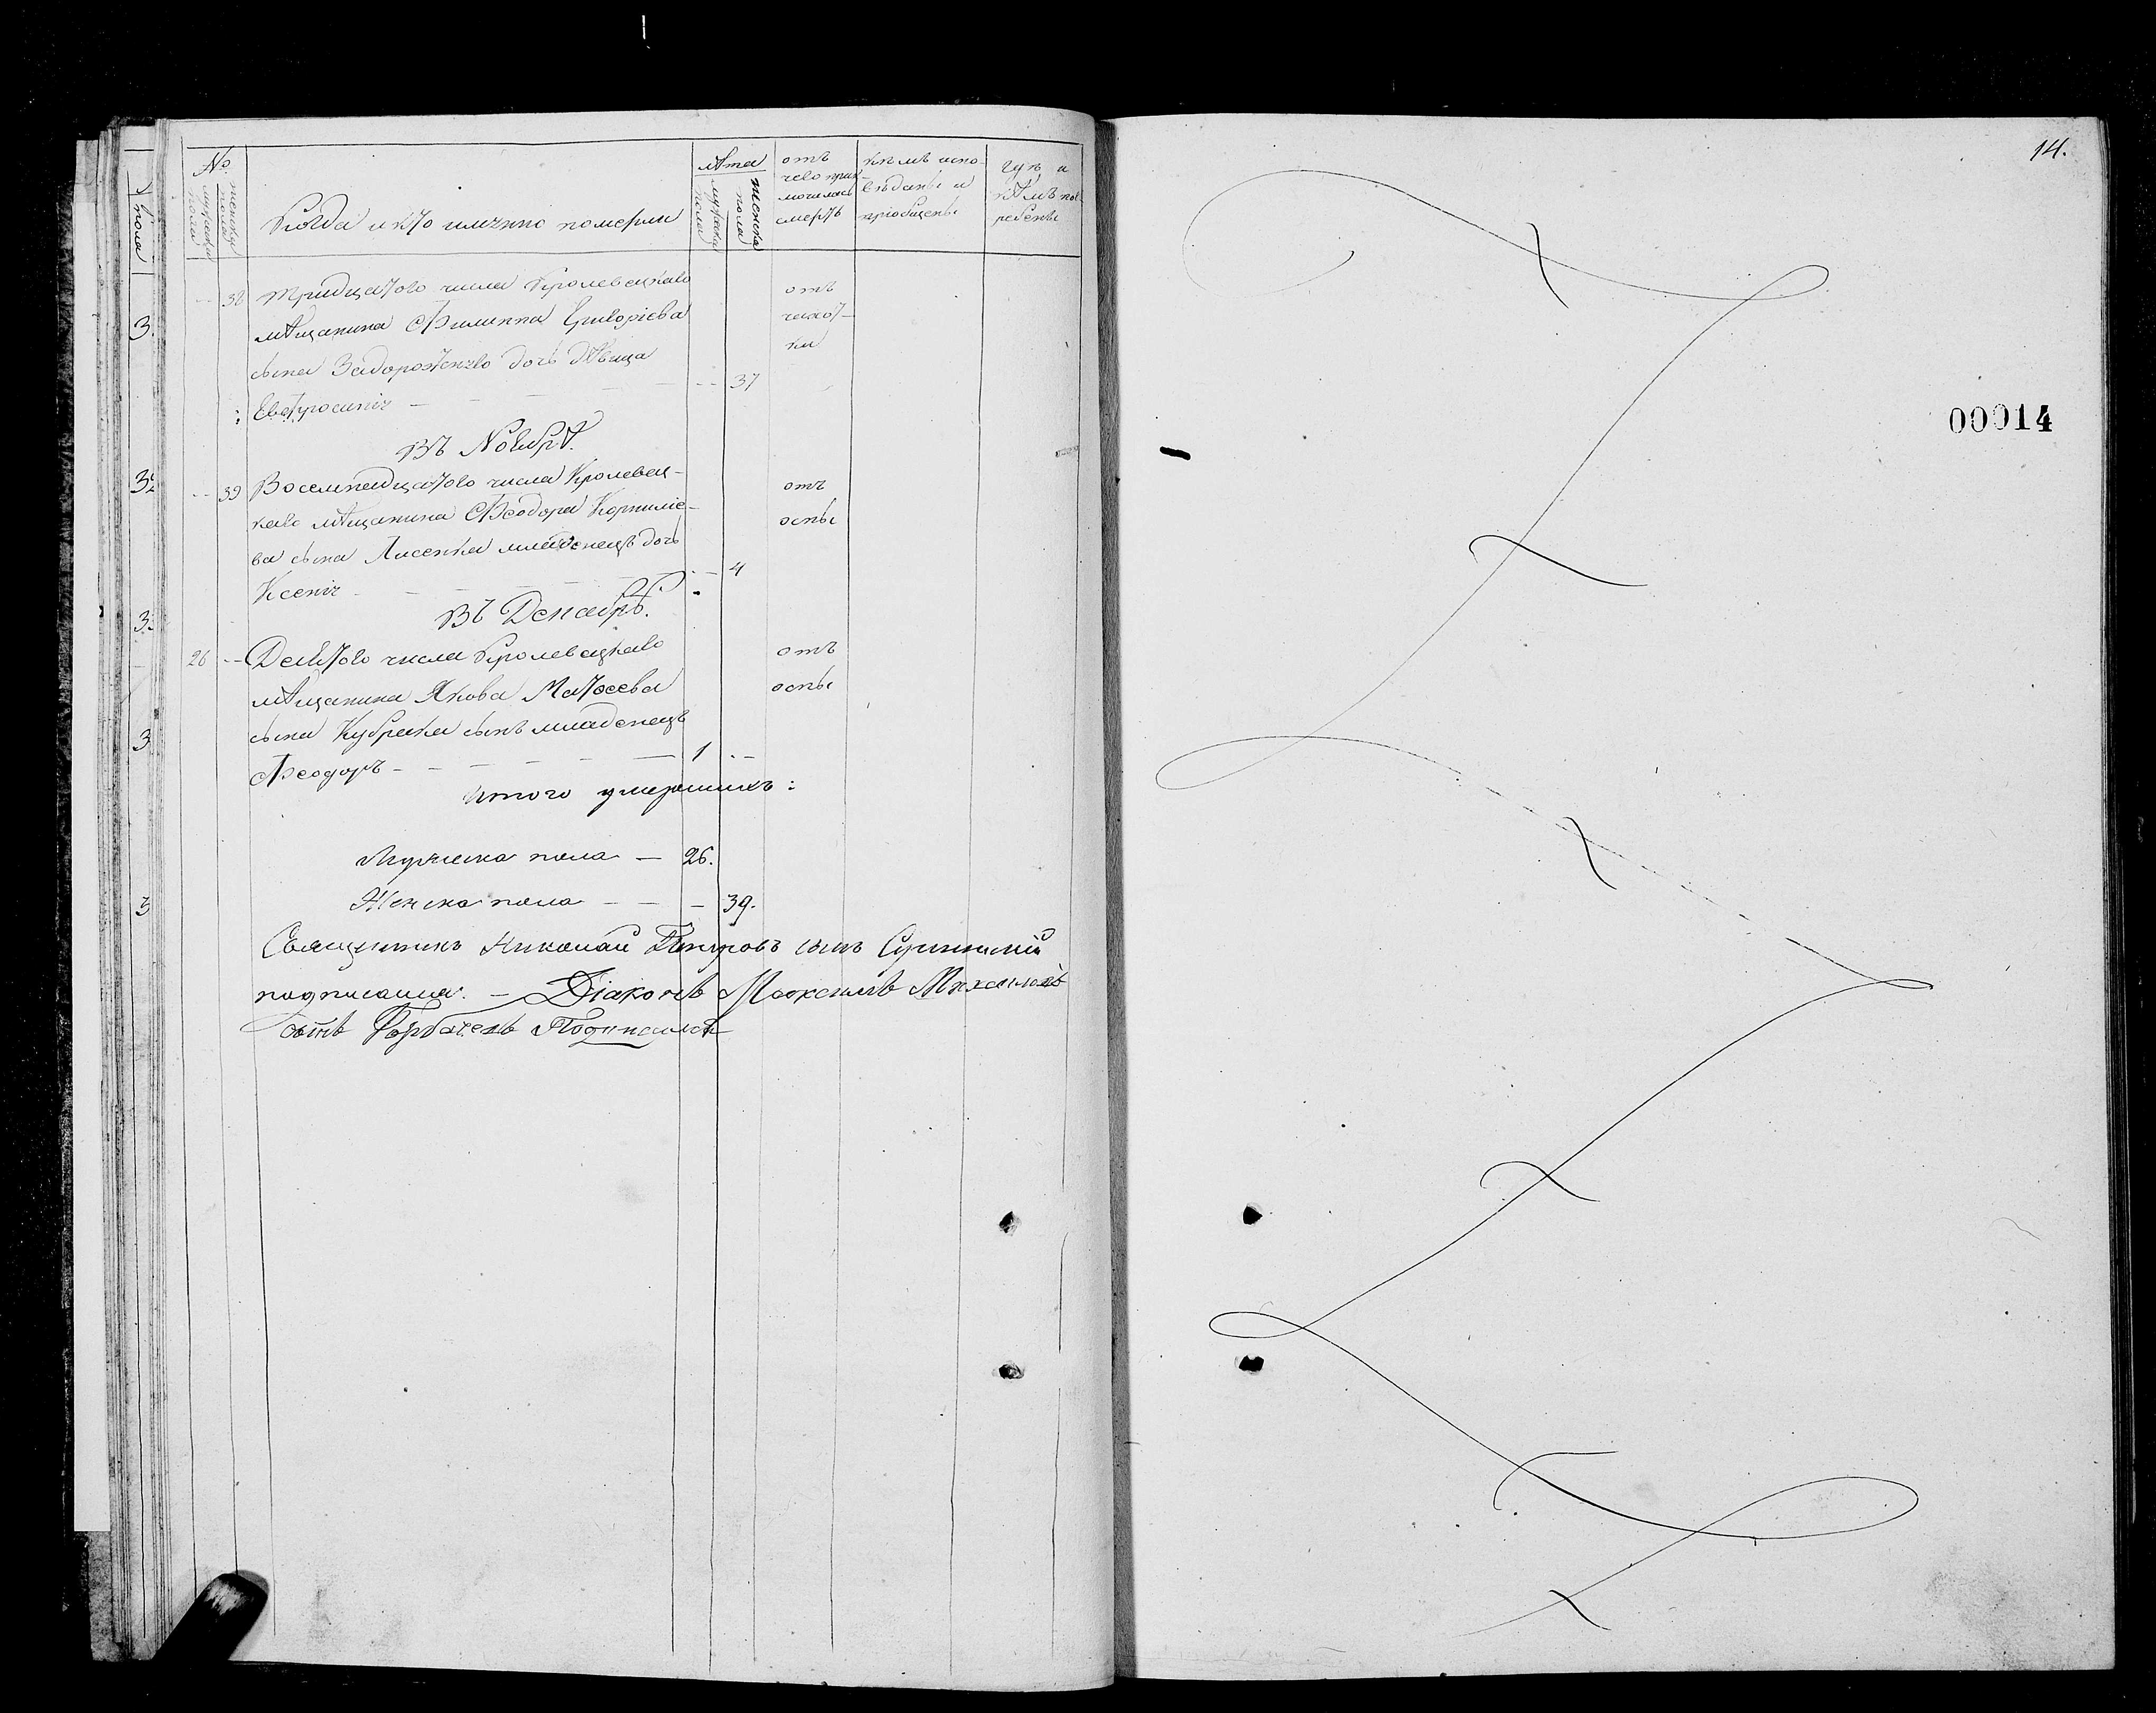 14.
00014
№
мужеска пола
женска пола
Когда и кто имянно померли
лѣта
мужеска пола
женска пола
отъ
чего прик-
лючилась
смерть
кѣмъ испо-
вѣданы и
пріобщены
гдѣ и
кѣмъ пог
ребены
38 тридцатого числа Кролевецкаго
мѣщанина Филиппа Григоріева
сына Задорожнего дочь дѣвица
Евфросинія — 37
отъ
чахот-
ки
въ Ноябрѣ.
39 Восемнадцатого числа Кролевец-
каго мѣщанина Феодора Корниліе-
ва сына Лисенка младенецъ дочь
Ксенія — 4
отъ
оспы
въ Декабрѣ.
26 Девятого числа Кролевецкаго
мѣщанина Якова Матвеева
сына Кубрака сынъ младенецъ
Феодоръ — 1
отъ
оспы
итого умершихъ:
Мужеска пола — 26.
Женска пола — 39.
Священникъ Николай Петровъ сынъ
подписалъ. — Діаконъ Максимъ Михаиловъ
сынъ Горбачевъ Подписался